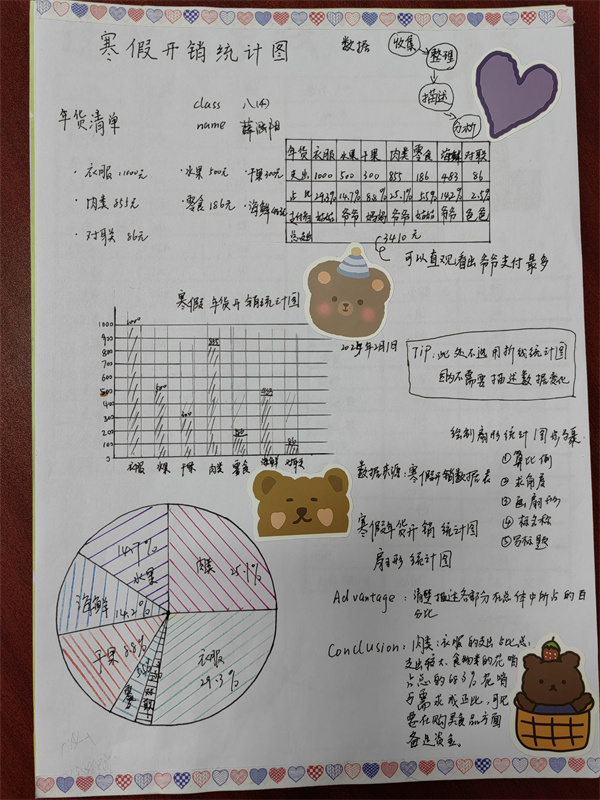 寒假开销统计图
数据
收集
整理
描述
分析
class 八(4)
name
年货清单
·衣服 1000元 ·水果500元 ·干果300元
·肉类 855元 ·零食186元 ·海鲜483元
·对联 86元
年货 衣服 水果 干果 肉类 零食 海鲜 对联
支出 1000 500 300 855 186 483 86
占比 29.3% 14.7% 8.8% 25.1% 5.5% 14.2% 2.5%
支付者 妈妈 爷爷 妈妈 爷爷 妈妈 爷爷 爸爸
总支出 3410元
可以直观看出爷爷支付最多
寒假年货开销统计图
1000
900
800
700
600
500
400
300
200
100
0
1000 500 300 855 186 483 86
衣服 水果 干果 肉类 零食 海鲜 对联
2025年2月1日
Tip:此处不选用折线统计图
因为不需要描述数据变化
绘制扇形统计图步骤
①算比例
②求角度
③画扇形
④标名称
⑤写标题
数据来源:寒假开销数据表
寒假年货开销统计图
扇形统计图
14.7%
水果
肉类
25.1%
海鲜
14.2%
干果 8.8%
衣服
29.3%
零食
5.5%
对联
Advantage:清楚描述各部分在总体中所占的百
分比
Conclusion:肉类、衣服的支出占比总
支出较大,食物类的花销
占总的68.3%花销
与需求成正比,可见
要在购买食品方面
备足资金。